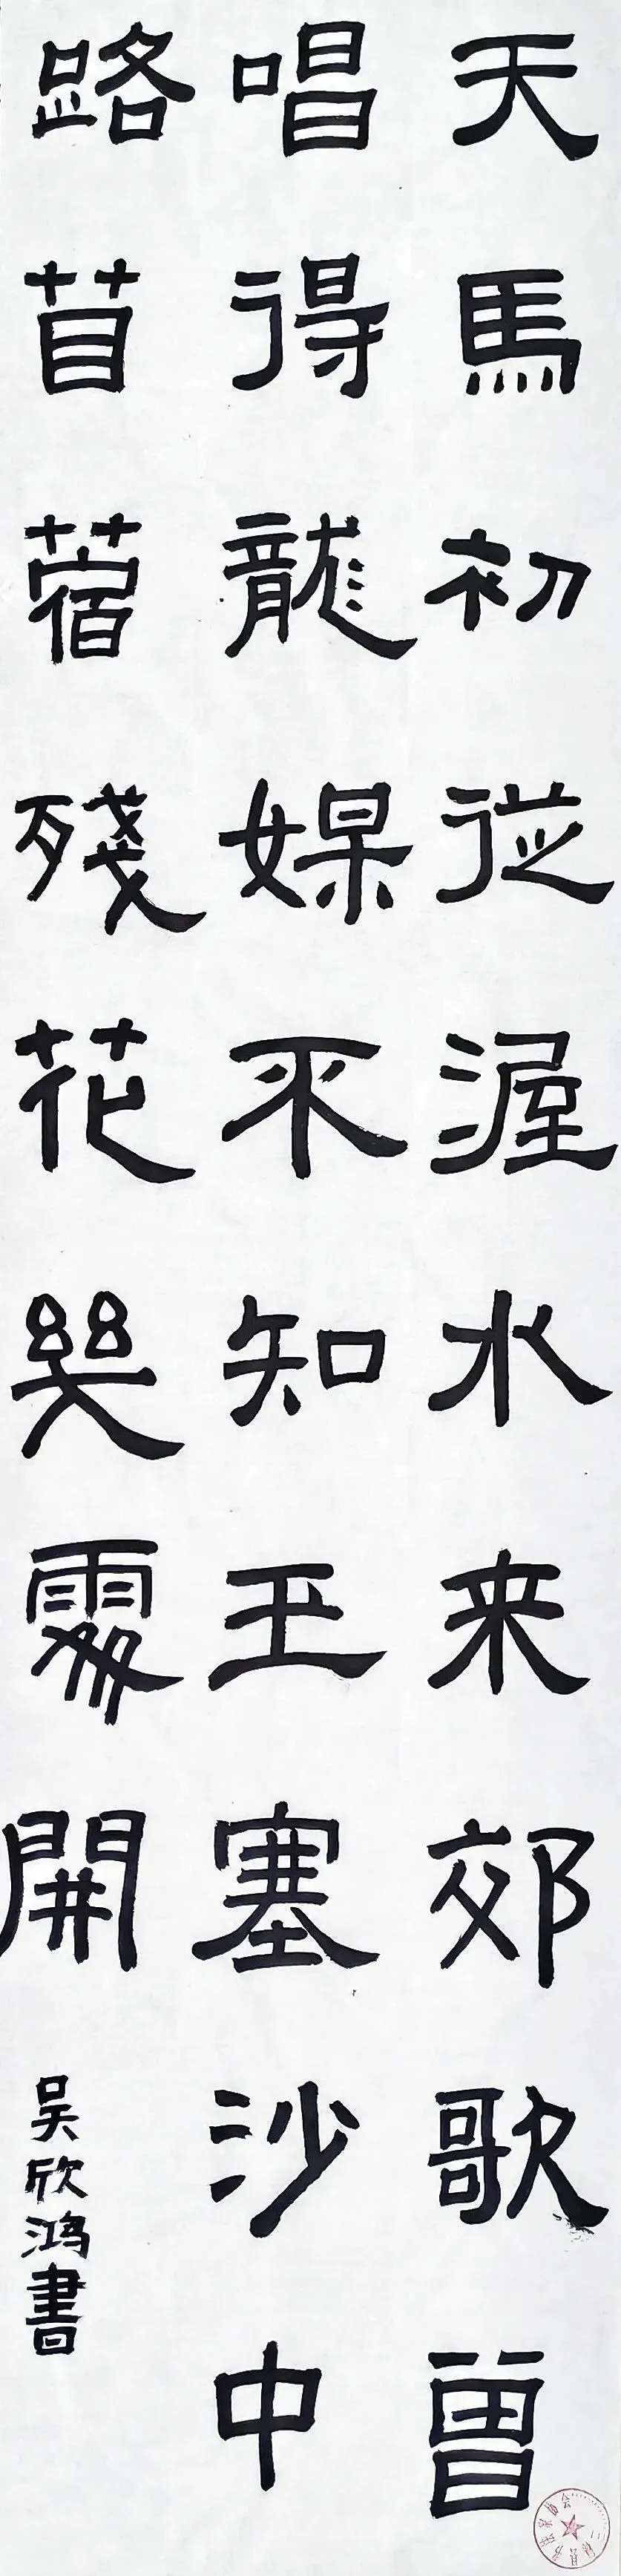 天馬初從渥水来郊歌曽
唱得龍媒不知玉塞沙中
路苜蓿殘花幾處開
吴欣鸿書